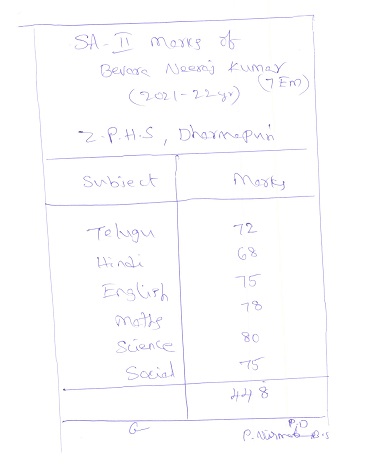 SA-II Marks of
Bevara Neeraj Kumar
(7 Em)
(2021-22 yr)
Z.P.H.S, Dharmapuri
Subject Marks
Telugu 72
Hindi 68
English 75
Maths 78
Science 80
Social 75
448
G
P.D